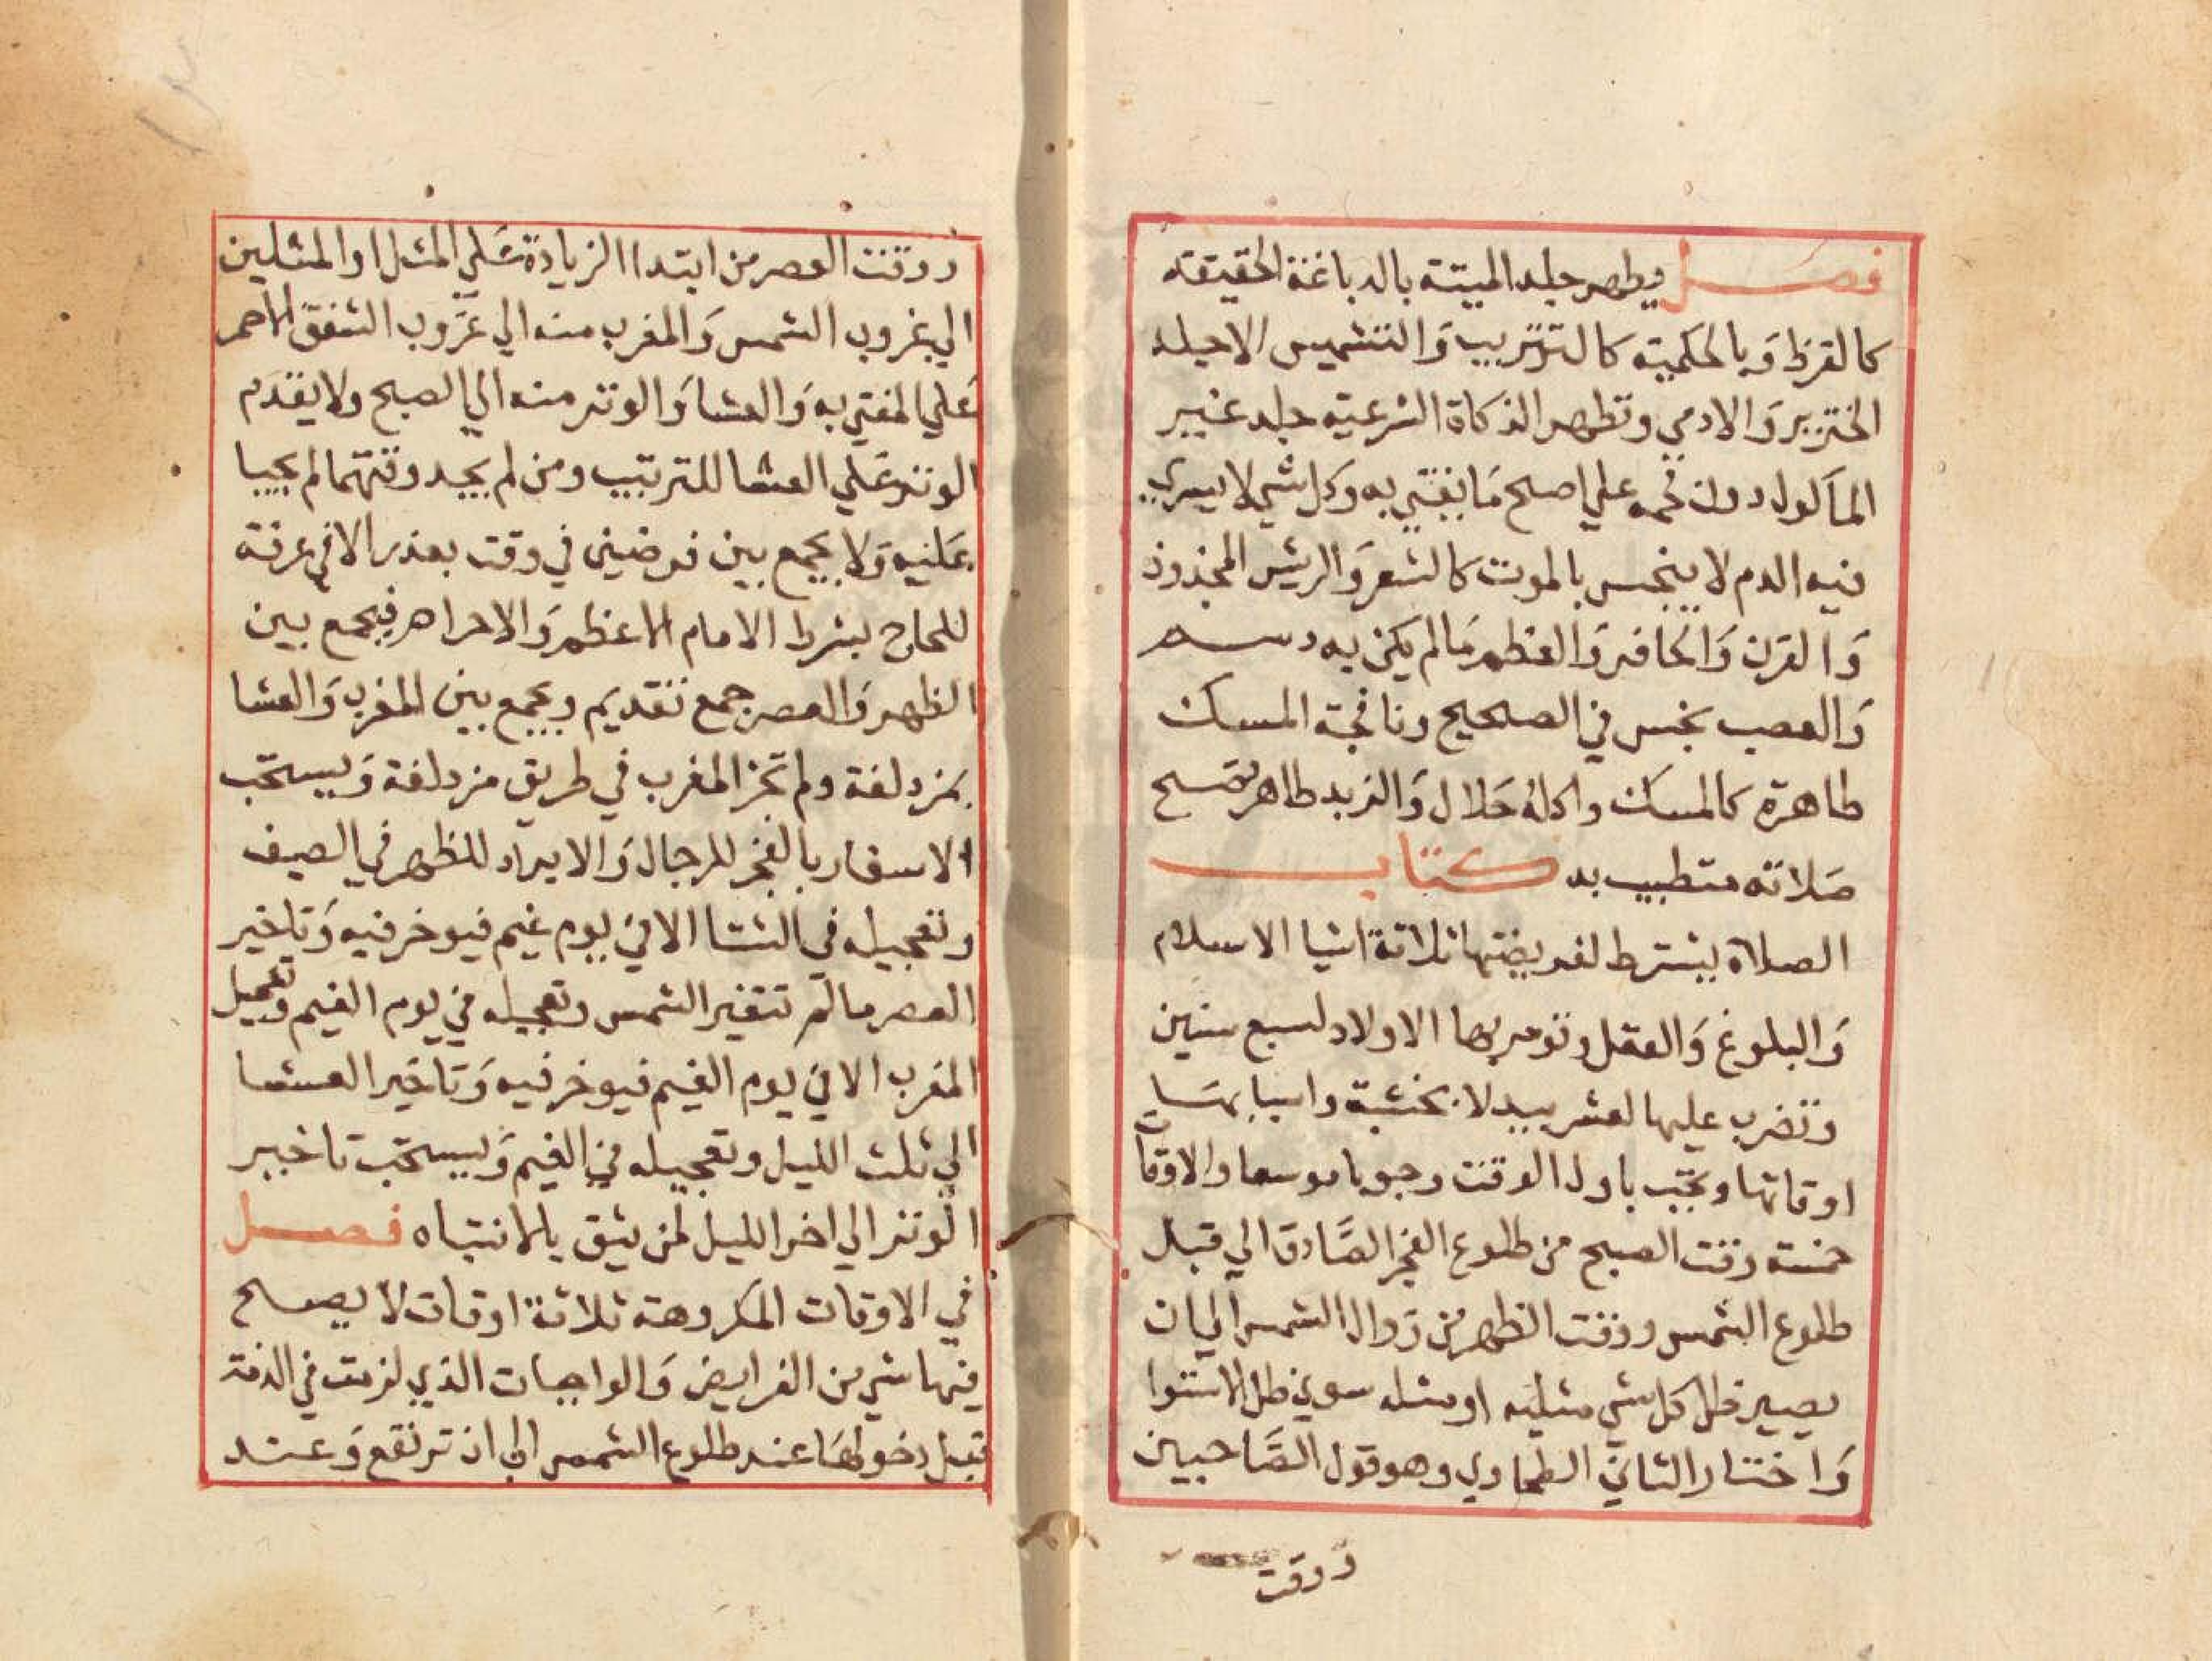 فصل يطهر جلد الميتة بالدباغة الحقيقته
كالقرظ وبالحكميته كالتتريب والتشميس الا جلد
الخنزير والادمي وتطهر الذكاة الشرعيته جلد غير
الماكول دون لحمه علي اصلح ما يفتي به وكل شي لا يسري
فيه الدم لا ينجس بالموت كالشعر والريش المجذوذ
وَالقرن وَالحافر وَالعظم مَالم يكن به دسم
وَالعصب نجس في الصحيح ونافجة المسك
طاهرة كالمسك واكله حَلال وَالزبد طاهر تصح
صَلاته متطيب به كتاب
الصلاة يشترط لفريضتها ثلاثة اشيا الاسلام
وَالبلوغ وَالعقل وتومر بها الاولاد لسبع سنين
وتضرب عليها لعشر بيد لا بخشبة واسبابها
اوقاتها وتجب باول الوقت وجوبا موسعا والاوقات
خمسة وقت الصبح من طلوع الفجر الصَّادق الي قبل
طلوع الشمس ووقت الظهر من زوال الشمس الي ان
يصير ظل كل شي مثليه او مثله سوي ظل الاستوا
وَاختار الثاني الطحاوي وهو قول الصَّاحبين
ووقت
ووقت العصر من ابتدا الزيادة عَلي المثل او المثلين
الي غروب الشمس وَالمغرب منه الي غروب الشفق الاحمر
عَلي المفتي به وَالعشا وَالوتر منه الي الصبح ولا يقدم
الوتر عَلي العشا للترتيب ومن لم يجد وقتهما لم يجبا
عَليه وَلا يجمع بين فرضين في وقت بعذر الا في عرفة
للحاج بشرط الامام الاعظم وَالاحرام فيجمع بين
الظهر وَالعصر جمع تقديم ويجمع بين المغرب وَالعشا
بمزدلفة ولم تجز المغرب في طريق مزدلفة وَيستحب
الاسفار بالفجر للرجال وَالابراد للظهر في الصيف
وتعجيله في الشتا الا في يوم غيم فيوخر فيه وَتاخير
العصر مالم تتغير الشمس وتعجيله في يوم الغيم وتعجيل
المغرب الا في يوم الغيم فيوخر فيه وَتاخير العشا
الي ثلث الليل وتعجيله في الغيم وَيستحب تاخير
الوتر الي اخر الليل لمن يثق بالانتباه فصل
في الاوقات المكروهة ثلاثة اوقات لا يصح
فيها شي من الفرايض وَالواجبات الذي لزمت في الذمة
قبل دخولها عند طلوع الشمس الي ان ترتفع وَعند